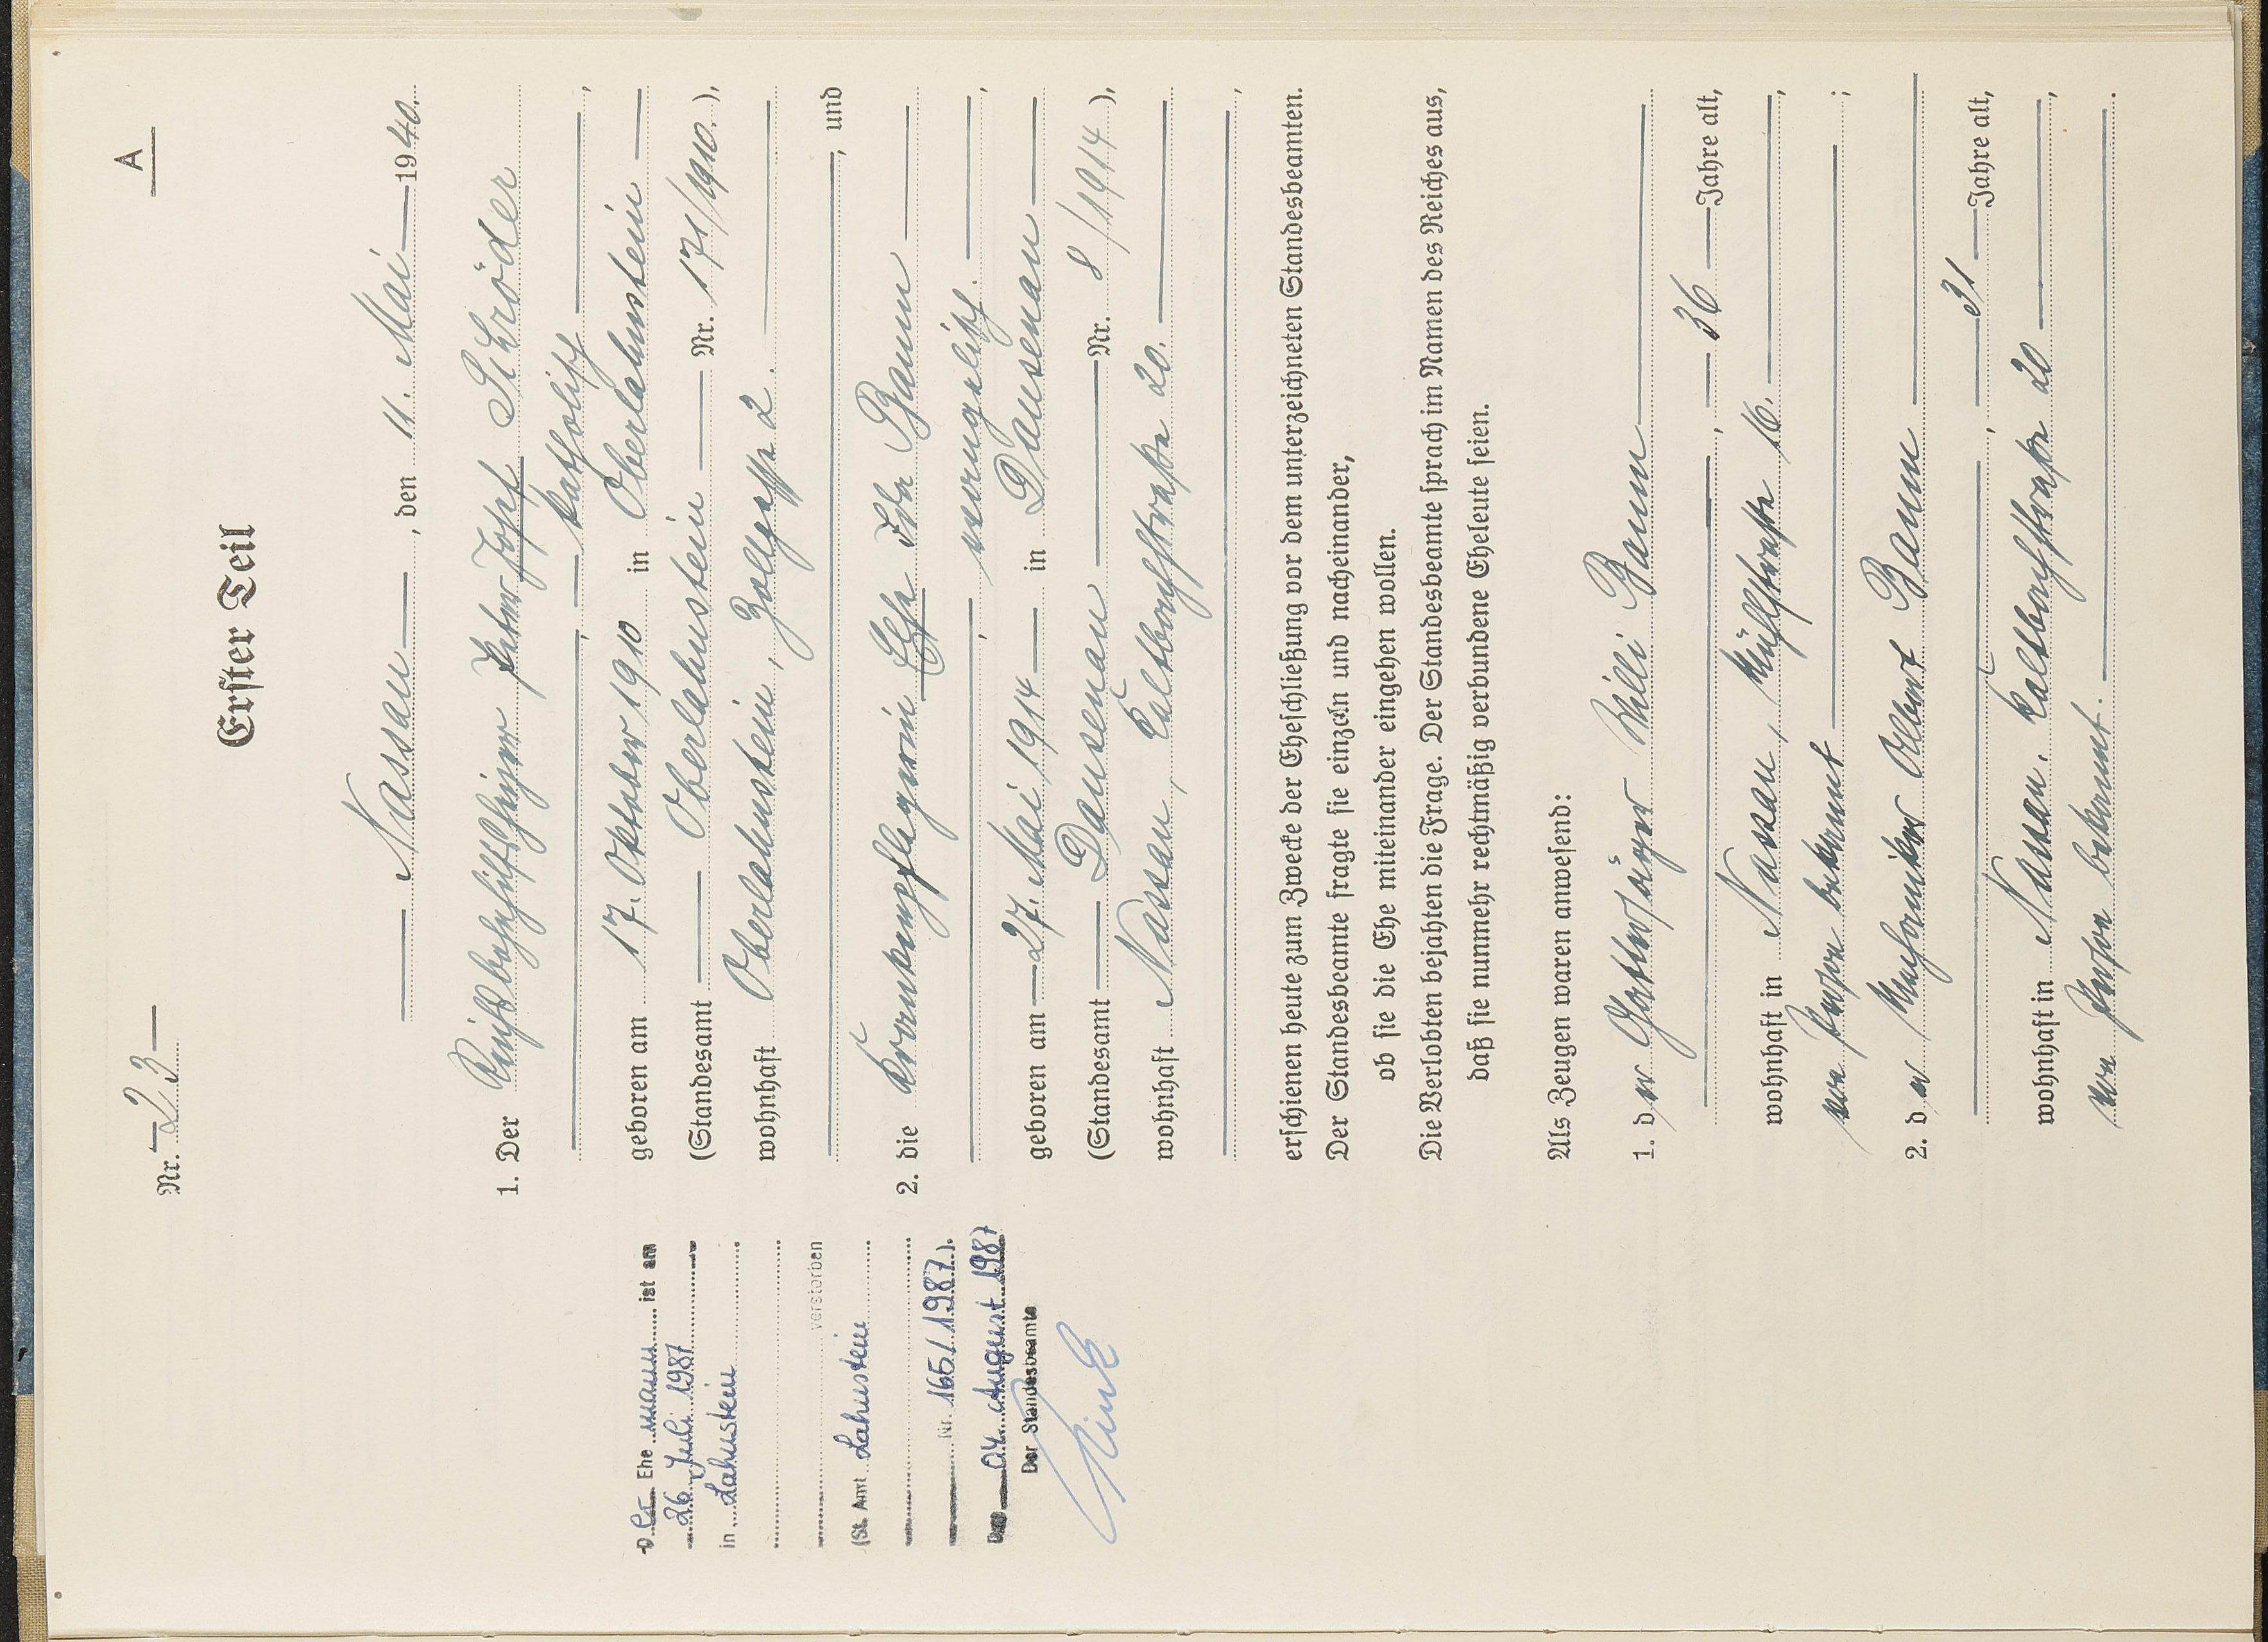 A
Nr. 23
Erster Teil
Nassau, den 11. Mai 1940.
1. Der Reichsbahnhilfsheizer Peter Josef Schröder
, katholisch,
geboren am 17. Oktober 1910 in Oberlahnstein
(Standesamt Oberlahnstein Nr. 171/1910.),
wohnhaft Oberlahnstein, Zollgasse 2.
, und
2. die Krankenpflegerin Else Ida Baum
, evangelisch,
geboren am 27. Mai 1914 in Dausenau
(Standesamt Dausenau Nr. 8/1914),
wohnhaft Nassau, Kaltbachstraße 20.
,
erschienen heute zum Zwecke der Eheschließung vor dem unterzeichneten Standesbeamten.
Der Standesbeamte fragte sie einzeln und nacheinander,
ob sie die Ehe miteinander eingehen wollen.
Die Verlobten bejahten die Frage. Der Standesbeamte sprach im Namen des Reiches aus,
daß sie nunmehr rechtmäßig verbundene Eheleute seien.
Als Zeugen waren anwesend:
1. der Willi Baum
, 36 Jahre alt,
wohnhaft in Nassau, Mühlstraße 16.,
von Person bekannt;
2. der Mechaniker Albert Baum
, 31 Jahre alt,
wohnhaft in Nassau, Kaltbachstraße 20,
von Person bekannt.
Der Ehemann ist am
26. Juli 1987
in Lahnstein
verstorben
(St. Amt Lahnstein
Nr. 165/1987).
Den 04. August 1987
Der Standesbeamte